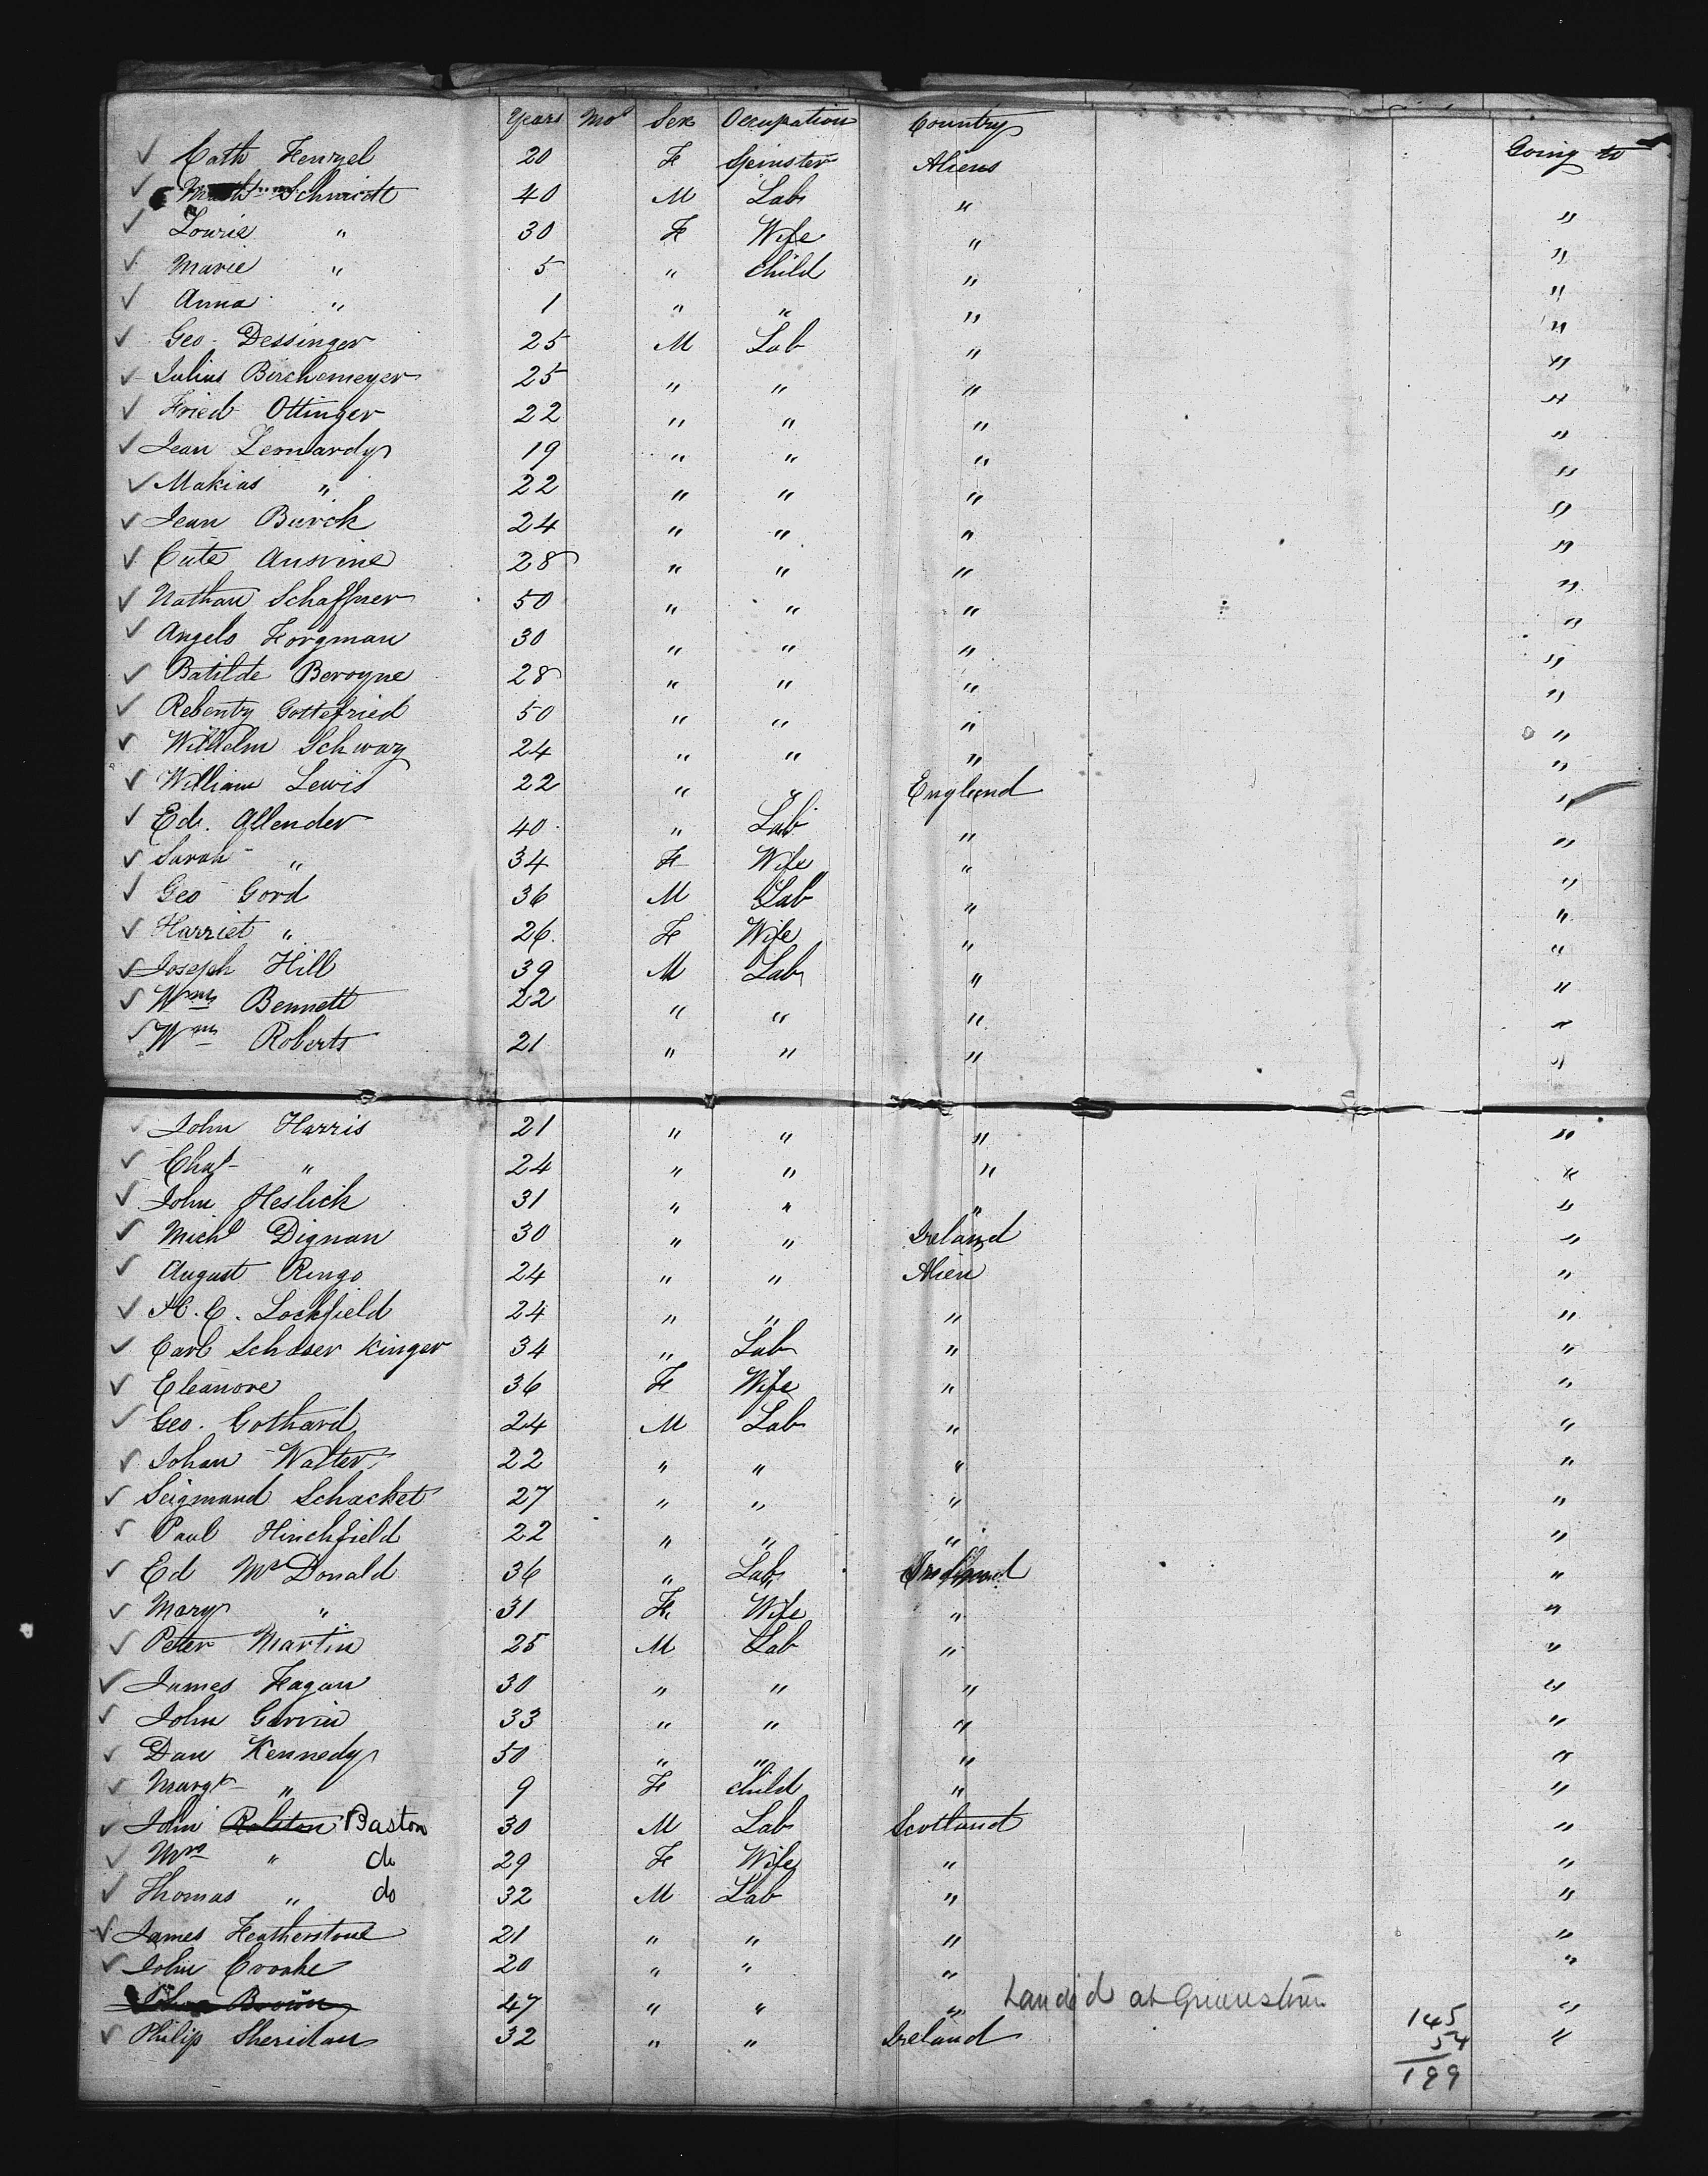 Years Mos Sex Occupation Country Going to
✓ Cath Fenzel 20 F Spinster Aliens
✓ Schmidt 40 M Lab " "
✓ Louise " 30 F Wife " "
✓ Marie " 5 " Child " "
✓ Anna " 1 " " " "
✓ Geo Dessinger 25 M Lab " "
✓ Julius Birchemeyer 25 " " " "
✓ Fried Ottinger 22 " " " "
✓ Jean Lennardy 19 " " " "
✓ Makias " 22 " " " "
✓ Jean Burck 24 " " " "
✓ Cute Ausvine 28 " " " "
✓ Nathan Schaffner 50 " " " "
✓ Angelo Forgman 30 " " " "
✓ Batilde Berogne 28 " " " "
✓ Rebenty Gottefried 50 " " " "
✓ Wilhelm Schwarz 24 " " " "
✓ William Lewis 22 " " England "
✓ Ed. Allender 40 " Lab " "
✓ Sarah " 34 F Wife " "
✓ Geo Gord 36 M Lab " "
✓ Harriet " 26 F Wife " "
✓ Joseph Hill 39 M Lab " "
✓ Wm Bennett 22 " " " "
✓ Wm Roberts 21 " " " "
✓ John Harris 21 " " " "
✓ Chas " 24 " " " "
✓ John Heslick 31 " " " "
✓ Michl Dignan 30 " " Ireland "
✓ August Ringo 24 " " Alien "
✓ H. C. Lockfield 24 " " " "
✓ Carl Schoser Kinger 34 " Lab " "
✓ Eleanore 36 F Wife " "
✓ Geo. Gothard 24 M Lab " "
✓ Johan Walter 22 " " " "
✓ Seigmand Schacket 27 " " " "
✓ Paul Hinchfield 22 " " " "
✓ Ed McDonald 36 " Lab Ireland "
✓ Mary " 31 F Wife " "
✓ Peter Martin 25 M Lab " "
✓ James Fagan 30 " " " "
✓ John Garvin 33 " " " "
✓ Dan Kennedy 50 " " " "
✓ Margt " 9 F Child " "
✓ John Ralston Baston 30 M Lab Scotland "
✓ Mrs " do 29 F Wife " "
✓ Thomas " do 32 M Lab " "
✓ James Featherstone 21 " " " "
✓ John Croake 20 " " " "
John Brown 47 " " " Landed at "
✓ Philip Sheridan 32 " " Ireland "
145
54
199